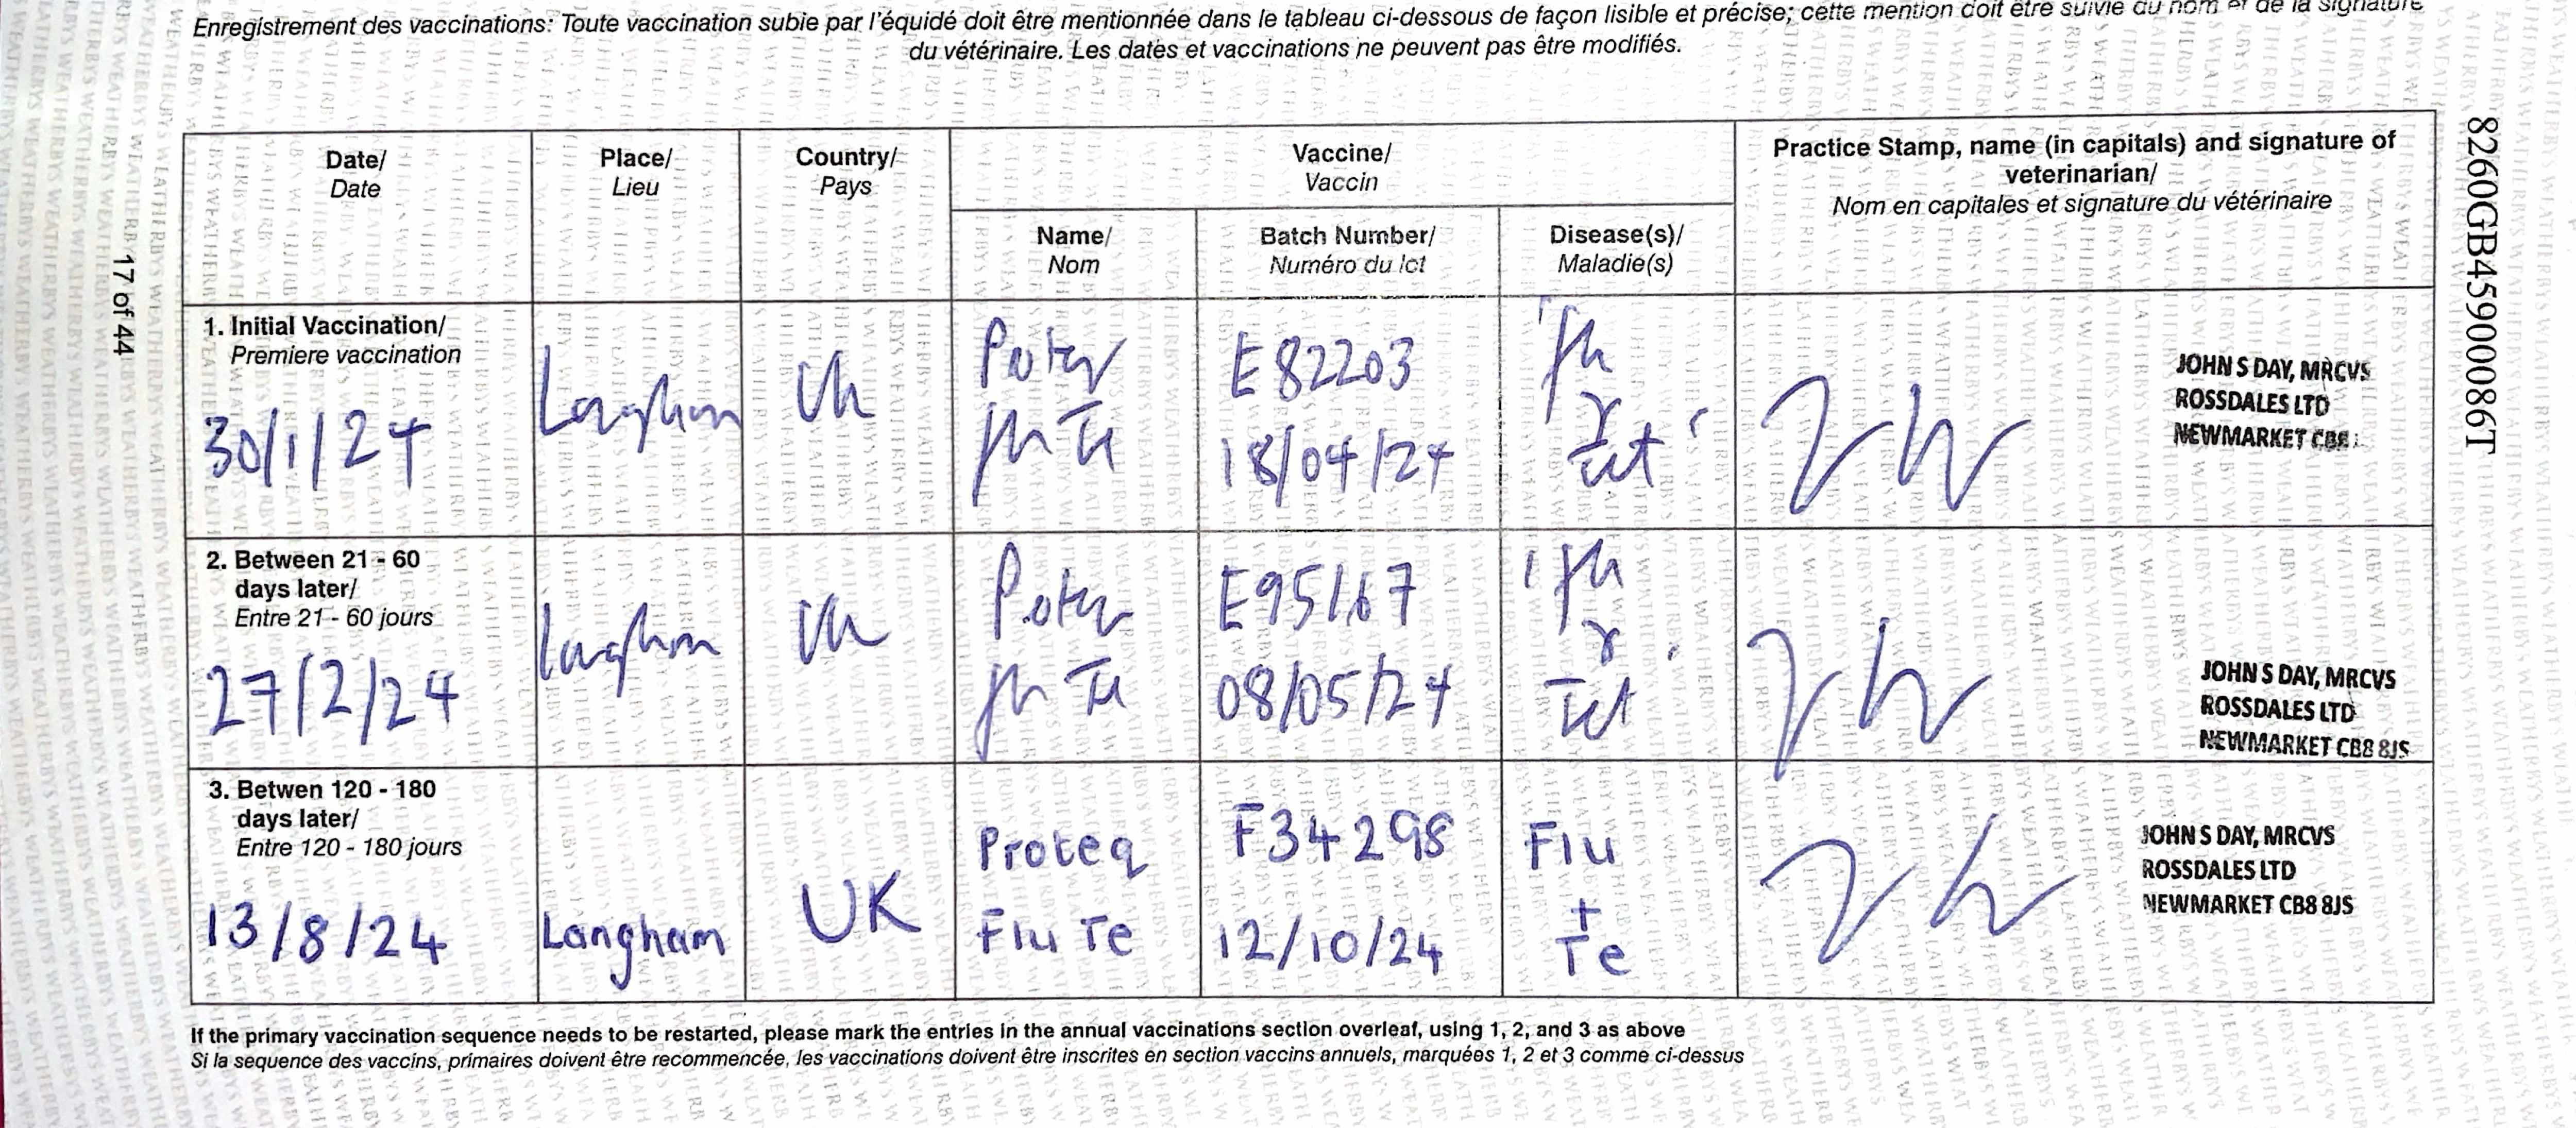 Enregistrement des vaccinations: Toute vaccination subie par l'équidé doit être mentionnée dans le tableau ci-dessous de façon lisible et précise; cette mention doit être suivie du nom et de la signature
du vétérinaire. Les dates et vaccinations ne peuvent pas être modifiés.
Date/
Date
Place/
Lieu
Country/
Pays
Vaccine/
Vaccin
Practice Stamp, name (in capitals) and signature of
veterinarian/
Nom en capitales et signature du vétérinaire
Name/
Nom
Batch Number/
Numéro du lot
Disease(s)/
Maladie(s)
1. Initial Vaccination/
Premiere vaccination
30/1/24
Langham
Uk
E82203
18/04/24
Tet
JOHN S DAY, MRCVS
ROSSDALES LTD
NEWMARKET CB8
2. Between 21 - 60
days later/
Entre 21 - 60 jours
27/2/24
Langham
Uk
E95167
08/05/24
Tet
JOHN S DAY, MRCVS
ROSSDALES LTD
NEWMARKET CB8 8JS
3. Betwen 120 - 180
days later/
Entre 120 - 180 jours
13/8/24
Langham
UK
Proteq
Flu Te
F34298
12/10/24
Flu
+
Te
JOHN S DAY, MRCVS
ROSSDALES LTD
NEWMARKET CB8 8JS
If the primary vaccination sequence needs to be restarted, please mark the entries in the annual vaccinations section overleaf, using 1, 2, and 3 as above
Si la sequence des vaccins, primaires doivent être recommencée, les vaccinations doivent être inscrites en section vaccins annuels, marquées 1, 2 et 3 comme ci-dessus
17 of 44
8260GB45900086T